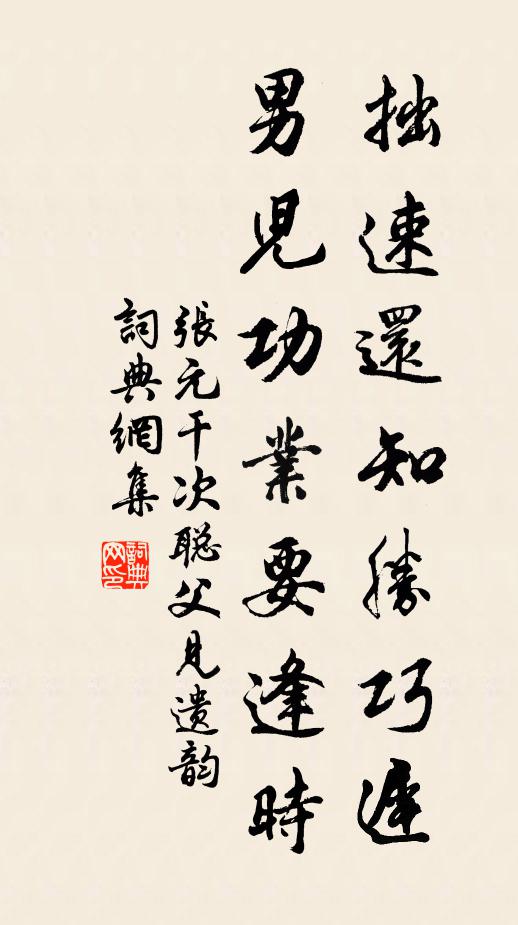 拙速還知勝巧遲
男児功業要逢時
張元干次聪父見遺韵
詞典網集
詞典
网印